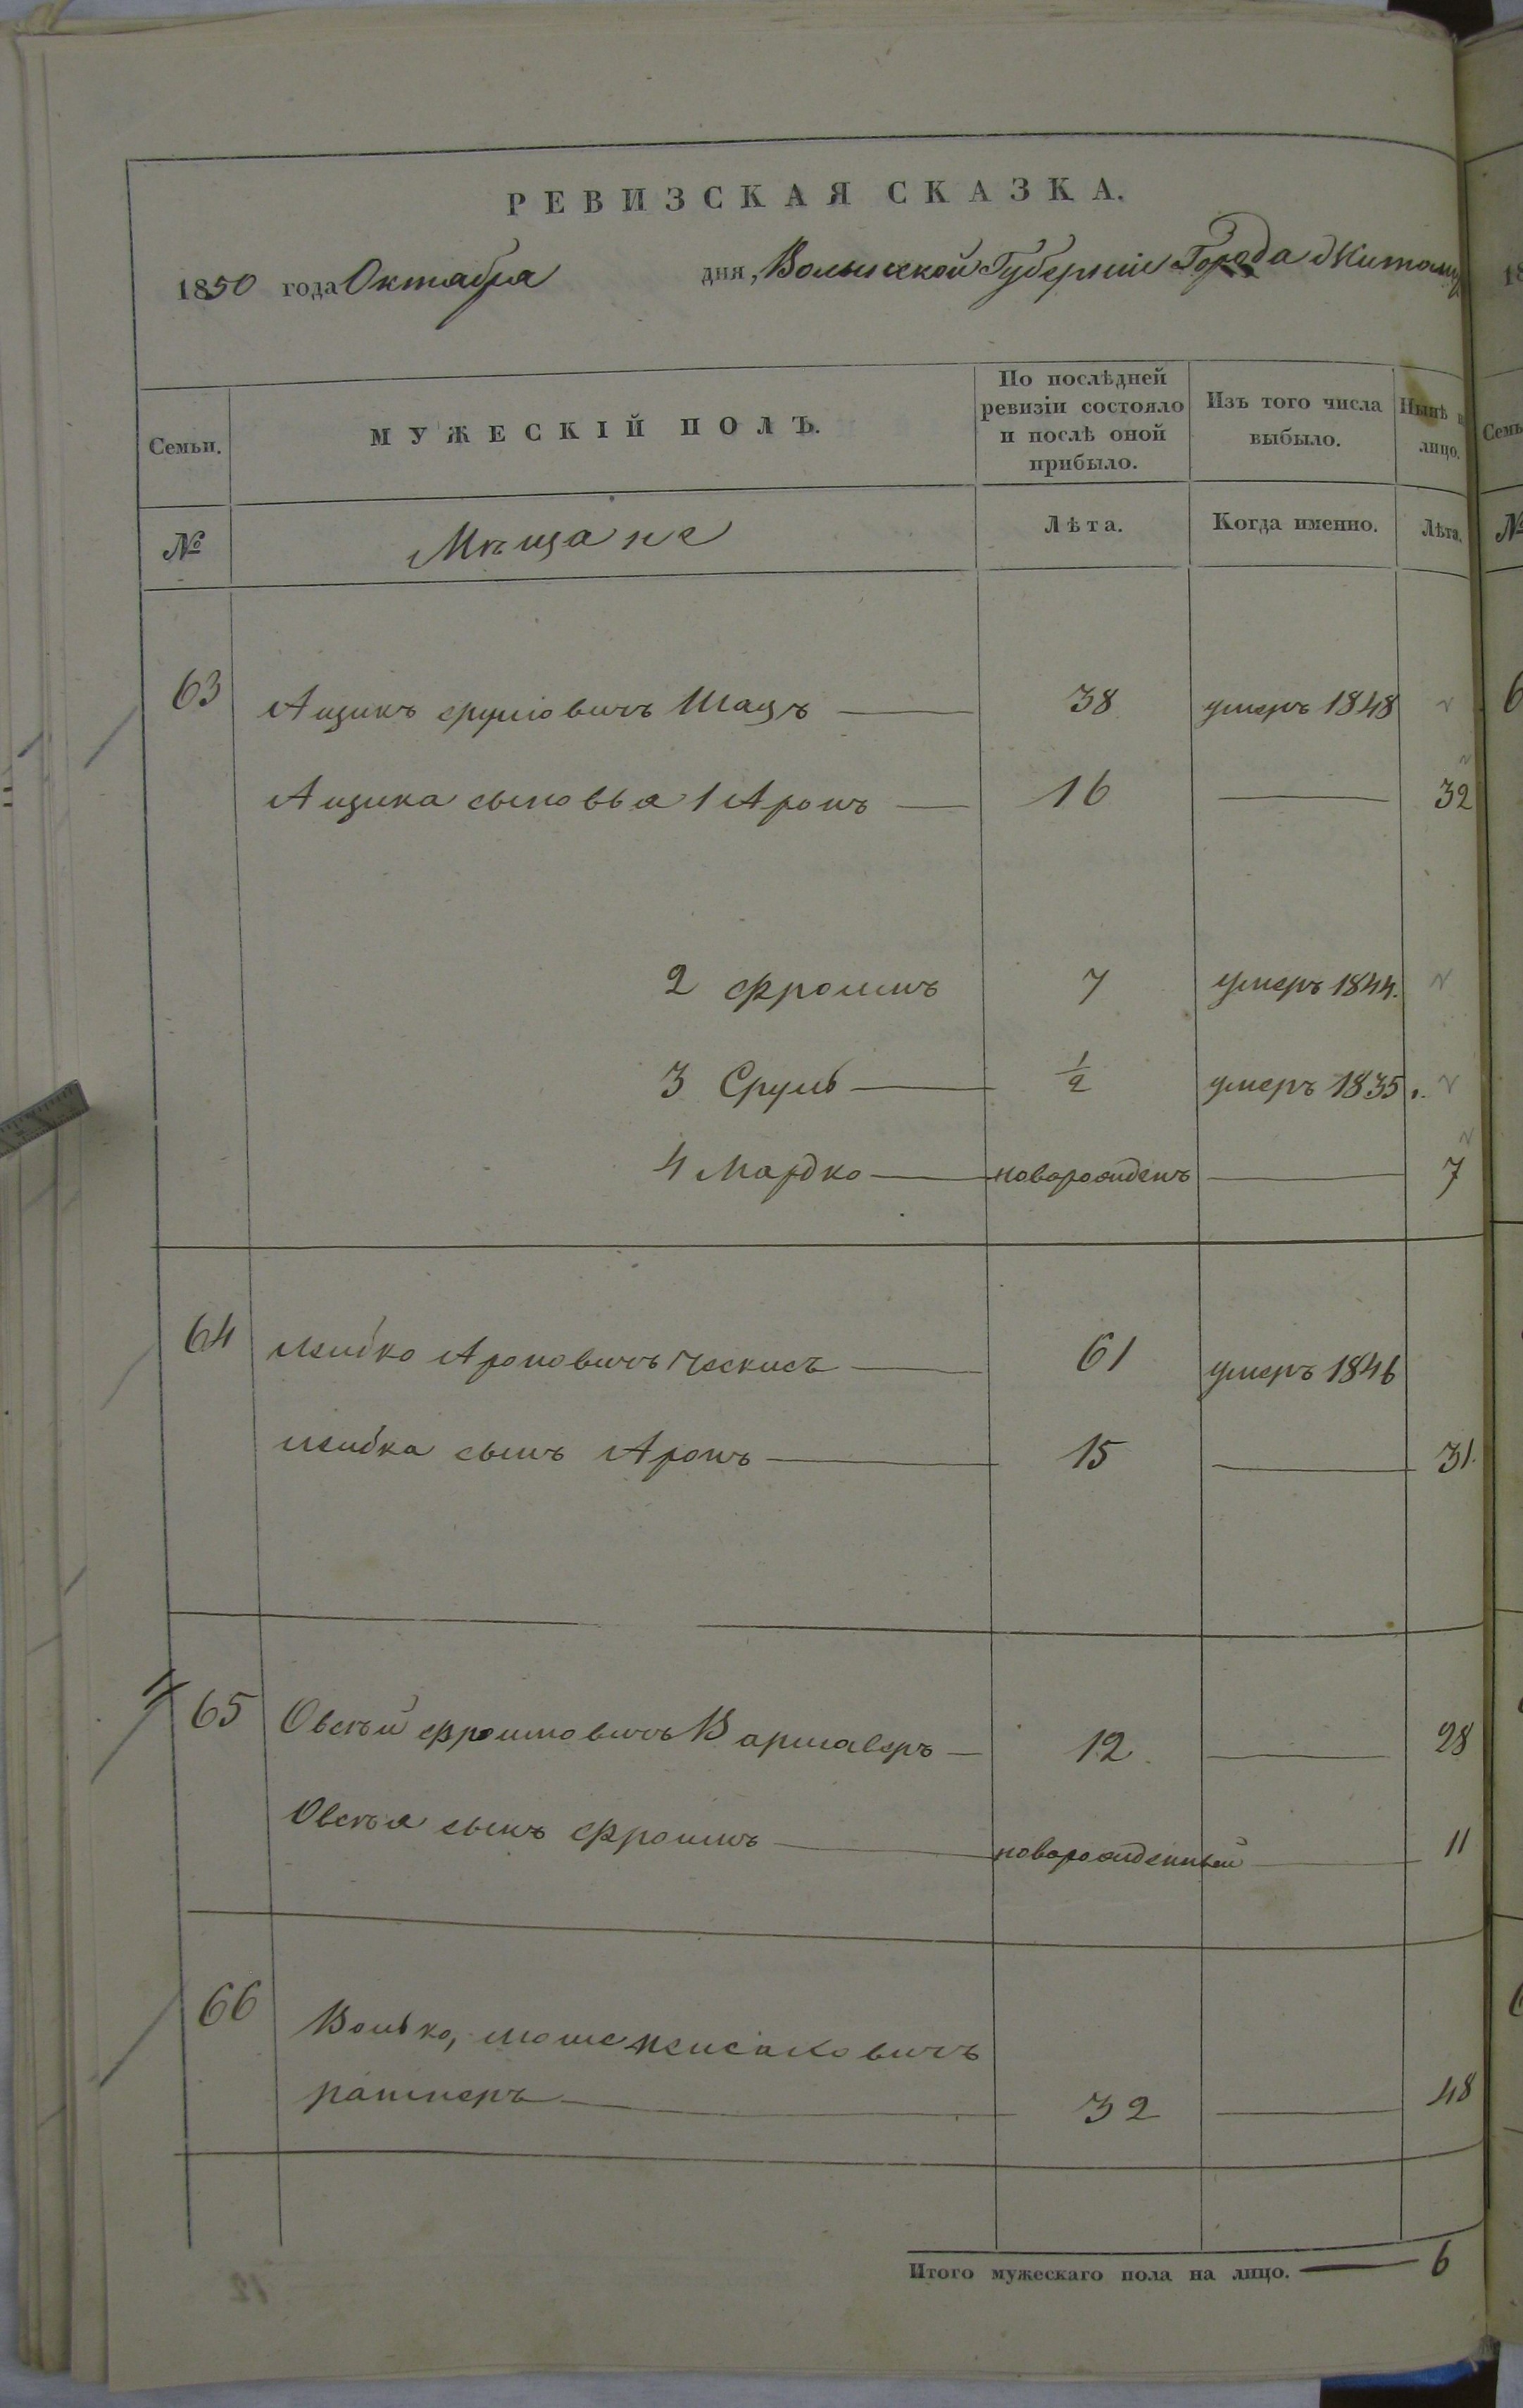 РЕВИЗСКАЯ СКАЗКА.
1850 года Октября дня, Волынской Губерніи Города Житоми
Семьи. МУЖЕСКІЙ ПОЛЪ. По послѣдней ревизіи состояло и послѣ оной прибыло. Изъ того числа выбыло. Нынѣ н лицо.
№ Мѣщане Лѣта. Когда именно. Лѣта.
63 Ицикъ Срулiовичъ Шацъ 38 умеръ 1848
Ицика сыновья 1 Аронъ 16 32
2 Фроимъ 7 умеръ 1844.
3 Сруль 1/2 умеръ 1835.
4 Мардко новорожденъ 7
64 Лейбко Ароновичъ 61 умеръ 1846
Лейбка сынъ Аронъ 15 31.
65 Овсѣй Фроимовичъ Варшаверъ 12 28
Овсѣя сынъ Фроимъ новорожденный 11
66 Волько, Мошко
Ратнеръ 32 48
Итого мужескаго пола на лицо. 6
12